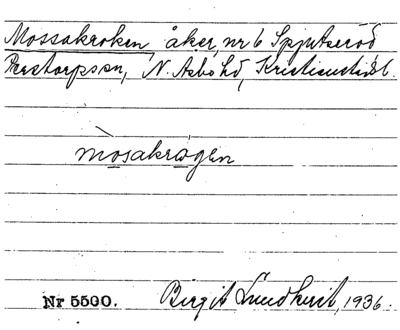 Mossakroken åker, nr 6 Spjutseröd
Perstorps sn, N. Åsbo hd, Kristianstds l.
mòsakrágen
Nr 5500. Birgit Lundkvist, 1936.